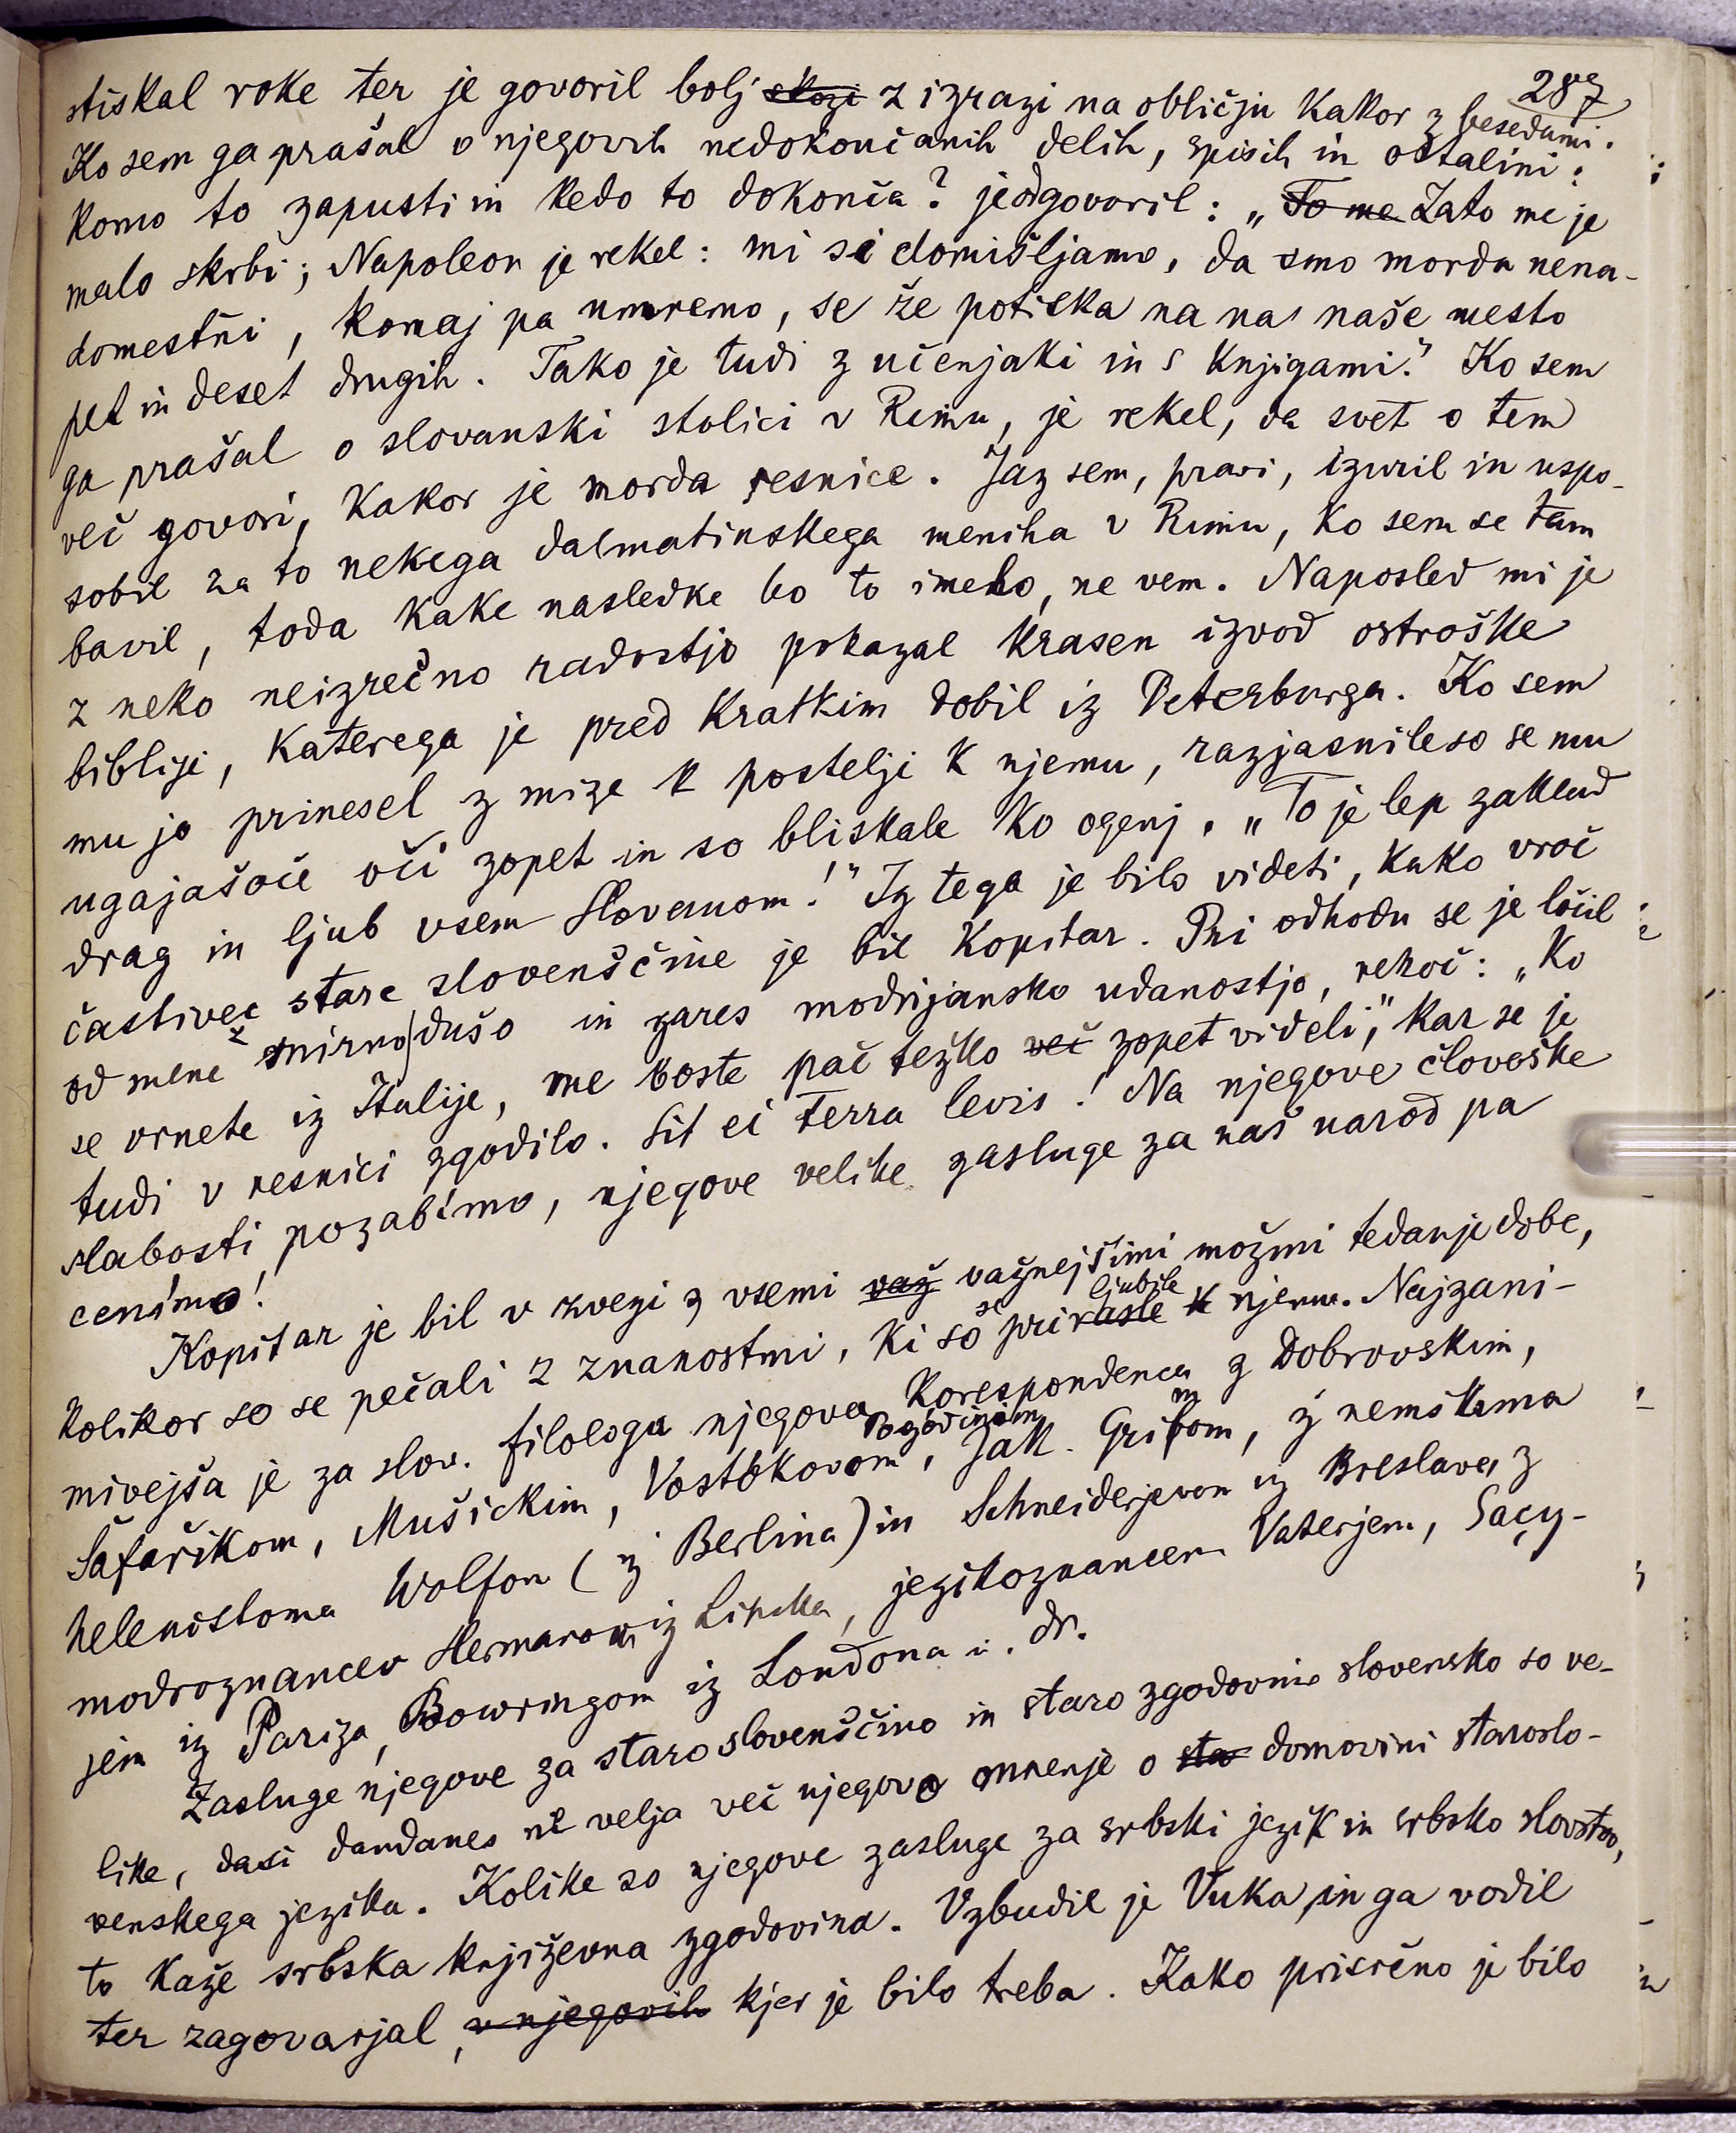 287
stiskal roke ter je govoril bolj skozi z izrazi na obličju kakor z besedami.
Ko sem ga prašal o njegovih nedokončanih delih, spisih in ostalini:
komu to zapusti in kedo to dokonča? je odgovoril: „To me Zato me je
malo skrbi; Napoleon je rekel: mi si domišljamo, da smo morda nena-
domestni, komaj pa umremo, se že potiska na nas naše mesto
pet in deset drugih. Tako je tudi z učenjaki in s knjigami.“ Ko sem
ga prašal o slovanski stolici v Rimu, je rekel, da svet o tem
več govori, kakor je morda resnice. Jaz sem, pravi, izuril in uspo-
sobil za to nekega dalmatinskega meniha v Rimu, ko sem se tam
bavil, toda kake nasledke bo to imelo, ne vem. Naposled mi je
z neko neizrečno radostjo pokazal krasen izvod ostroške
biblije, katerega je pred kratkim dobil iz Peterburga. Ko sem
mu jo prinesel z mize k postelji k njemu, razjasnile so se mu
ugajašoče oči zopet in so bliskale ko ogenj. „To je lep zaklad
drag in ljub vsem Slovanom!“ Iz tega je bilo videti, kako vroč
častivec stare slovenščine je bil Kopitar. Pri odhodu se je ločil
od mene z mirno dušo in zares modrijansko udanostjo, rekoč: „Ko
se vrnete iz Italije, me boste pač težko več zopet videli,“ kar se je
tudi v resnici zgodilo. Sit ei terra levis! Na njegove človeške
slabosti pozabimo, njegove velike zasluge za naš narod pa
cenimo!
Kopitar je bil v zvezi z vsemi važ važnejšimi možmi tedanje dobe,
kolikor so se pečali z znanostmi, ki so se priljubile prirasle k njemu. Najzani-
mivejša je za slov. filologa njegova korespondenca z Dobrovskim,
Šafařikom, Mušickim, Vostokovom, Pogodinom, Jak. Grimom, z nemškima
helenistoma Wolfom (iz Berlina) in Schneiderjevom iz Breslave, z
modroznancev Hermanom iz Lipska, jezikoznancem Vaterjem, Saçy-
jem iz Pariza, Bowringom iz Londona i. dr.
Zasluge njegove za staro slovenščino in staro zgodovino slovensko so ve-
like, dasi dandanes ne velja več njegovo mnenje o sta domovini staroslo-
venskega jezika. Kolike so njegove zasluge za srbski jezik in srbsko slovstvo,
to kaže srbska književna zgodovina. Vzbudil je Vuka, in ga vodil
ter zagovarjal, v njegovih kjer je bilo treba. Kako prisrčno je bilo